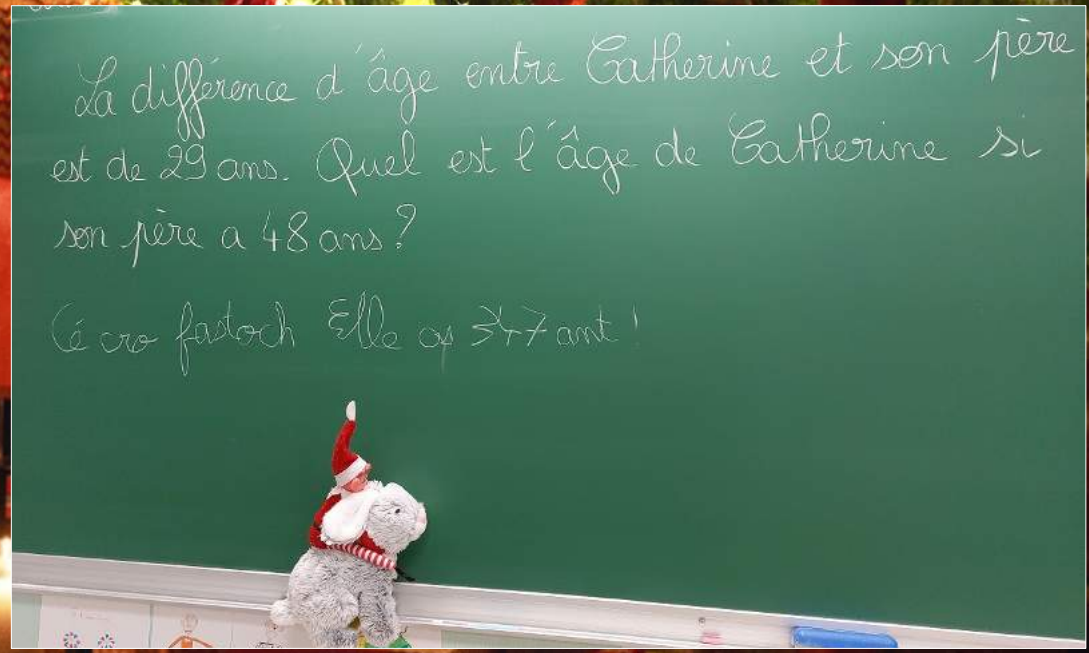 La différence d'âge entre Catherine et son père
est de 29 ans. Quel est l'âge de Catherine si
son père a 48 ans?
Cé cro fastoch Elle as 347 ant!